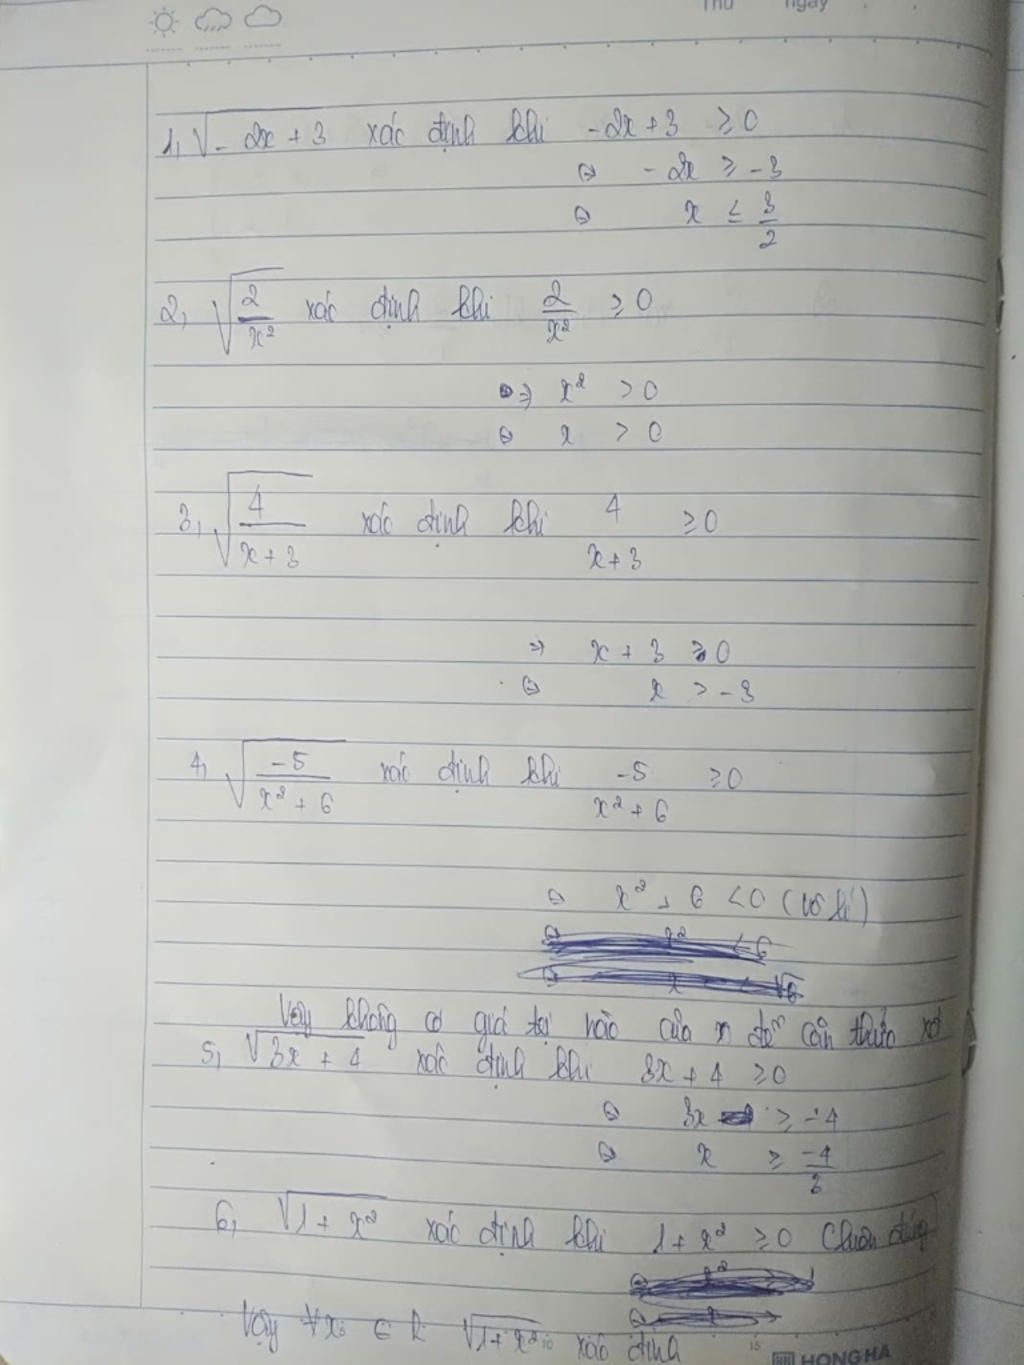 Thứ ngày
1, √(-2x + 3) xác định khi -2x + 3 ≥ 0
⇔ -2x ≥ -3
⇔ x ≤ 3/2
2, √(2/x²) xác định khi 2/x² ≥ 0
⇒ x² > 0
⇔ x > 0
3, √(4/(x + 3)) xác định khi 4/(x + 3) ≥ 0
⇒ x + 3 ≥ 0
⇔ x > -3
4, √(-5/(x² + 6)) xác định khi -5/(x² + 6) ≥ 0
⇔ x² + 6 < 0 (vô lí)
Vậy không có giá trị nào của x để căn thức xđ
5, √(3x + 4) xác định khi 3x + 4 ≥ 0
⇔ 3x ≥ -4
⇔ x ≥ -4/3
6, √(1 + x²) xác định khi 1 + x² ≥ 0 (luôn đúng
Vậy ∀x ∈ R √(1 + x²) xác định
10 15
HONG HA